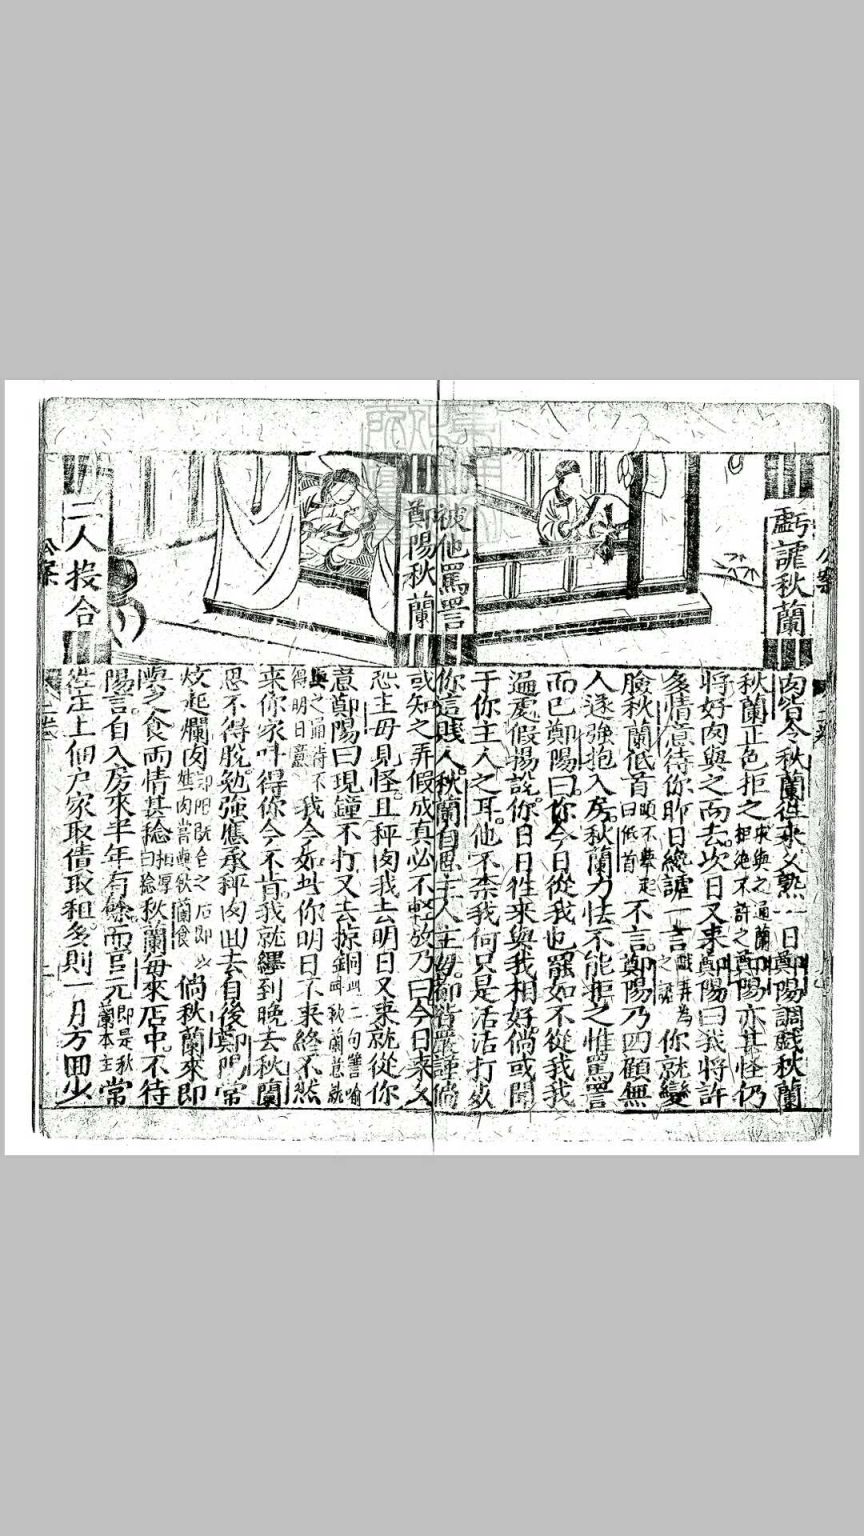 戲謔秋蘭
被他罵詈
鄭陽秋蘭
二人投合
公案
肉皆令秋蘭往來久熟一日鄭陽調戲秋蘭
秋蘭正色拒之求與之通蘭即拒絕不許之鄭陽亦甚怪仍
將好肉與之而去次日又來鄭陽曰我將許
多情意待你昨日纔謔一言戲弄為之謔你就變
臉秋蘭低首頭不舉起曰低首不言鄭陽乃四顧無
人遂強抱入房秋蘭力怯不能拒之惟罵詈
而已鄭陽曰你今日從我也罷如不從我我
遍處假揚說你日日往來與我相好倘或聞
于你主人之耳他不奈我何只是活活打死
你這賤人秋蘭自思主人主母節皆嚴謹倘
或知之弄假成真必不輕放乃曰今日來久
恐主母見怪且秤肉我去明日又來就從你
意鄭陽曰現鐘不打又去掠銅此二句譬喻叫秋蘭意就
與之通待不得明日意我今如此你明日不來終不然
來你家叫得你今不肯我就纏到晚去秋蘭
思不得脫勉強應承秤肉回去自後鄭陽常
炆起爛肉倘秋蘭來即
與之食兩情甚稔相厚曰稔秋蘭每來店中不待
陽言自入房來半年有餘而官元即是秋蘭本主常
往庄上佃戶家取債取租多則一月方回少